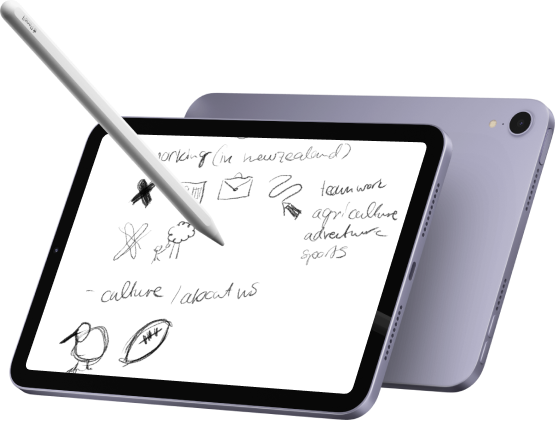 working (in newzealand)
teamwork
agriculture
adventure
sports
- culture / about us